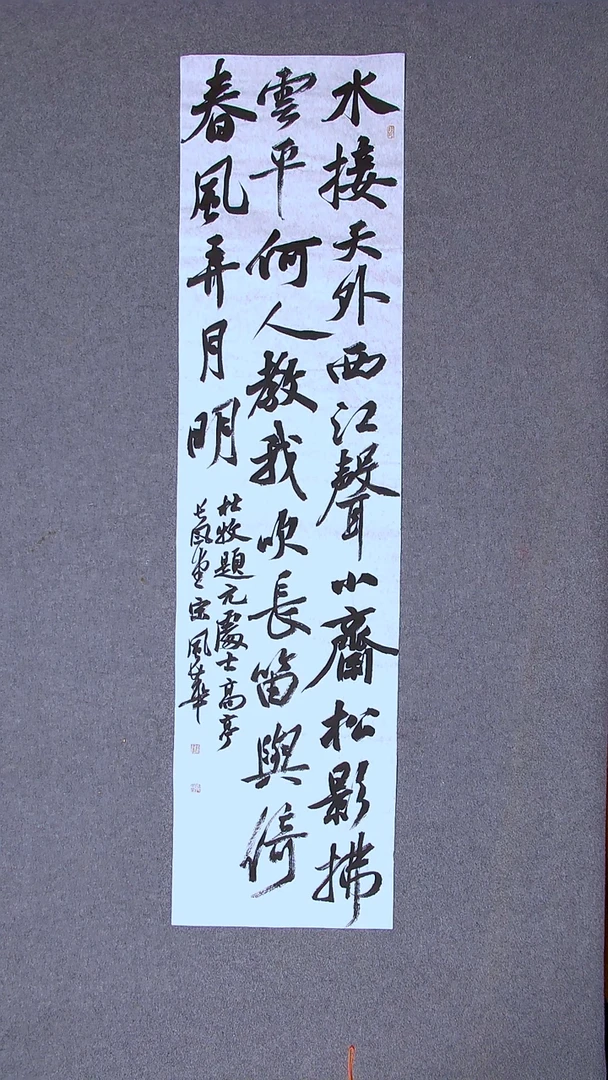 水接天外西江聲小齋松影拂
雲平何人教我吹長笛與倚
春風弄月明
杜牧題元處士高亭
長風堂宗風華